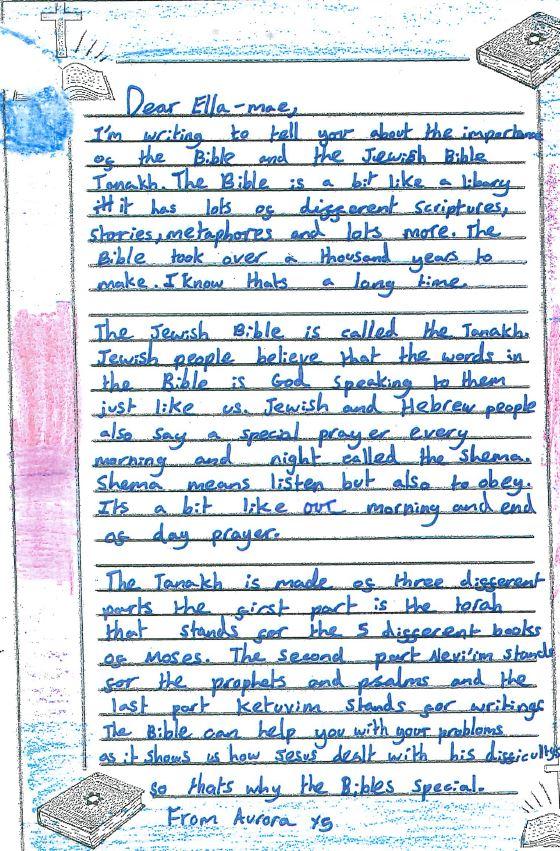 Dear Ella-mae,
I'm writing to tell your about the importance
of the Bible and the Jewish Bible
Tanakh. The Bible is a bit like a libary
it has lots of different scriptures,
stories, metaphores and lots more. The
Bible took over a thousand years to
make. I know thats a long time.
The Jewish Bible is called the Tanakh.
Jewish people believe that the words in
the Bible is God speaking to them
just like us. Jewish and Hebrew people
also say a special prayer every
morning and night called the Shema.
Shema means listen but also to obey.
Its a bit like our morning and end
of day prayer.
The Tanakh is made of three different
parts the first part is the torah
that stands for the 5 different books
of Moses. The second part Nevi'im stands
for the prophets and psalms and the
last part Ketuvim stands for writings
The Bible can help you with your problems
as it shows us how Jesus dealt with his difficultys
so thats why the Bibles special.
From Aurora y5